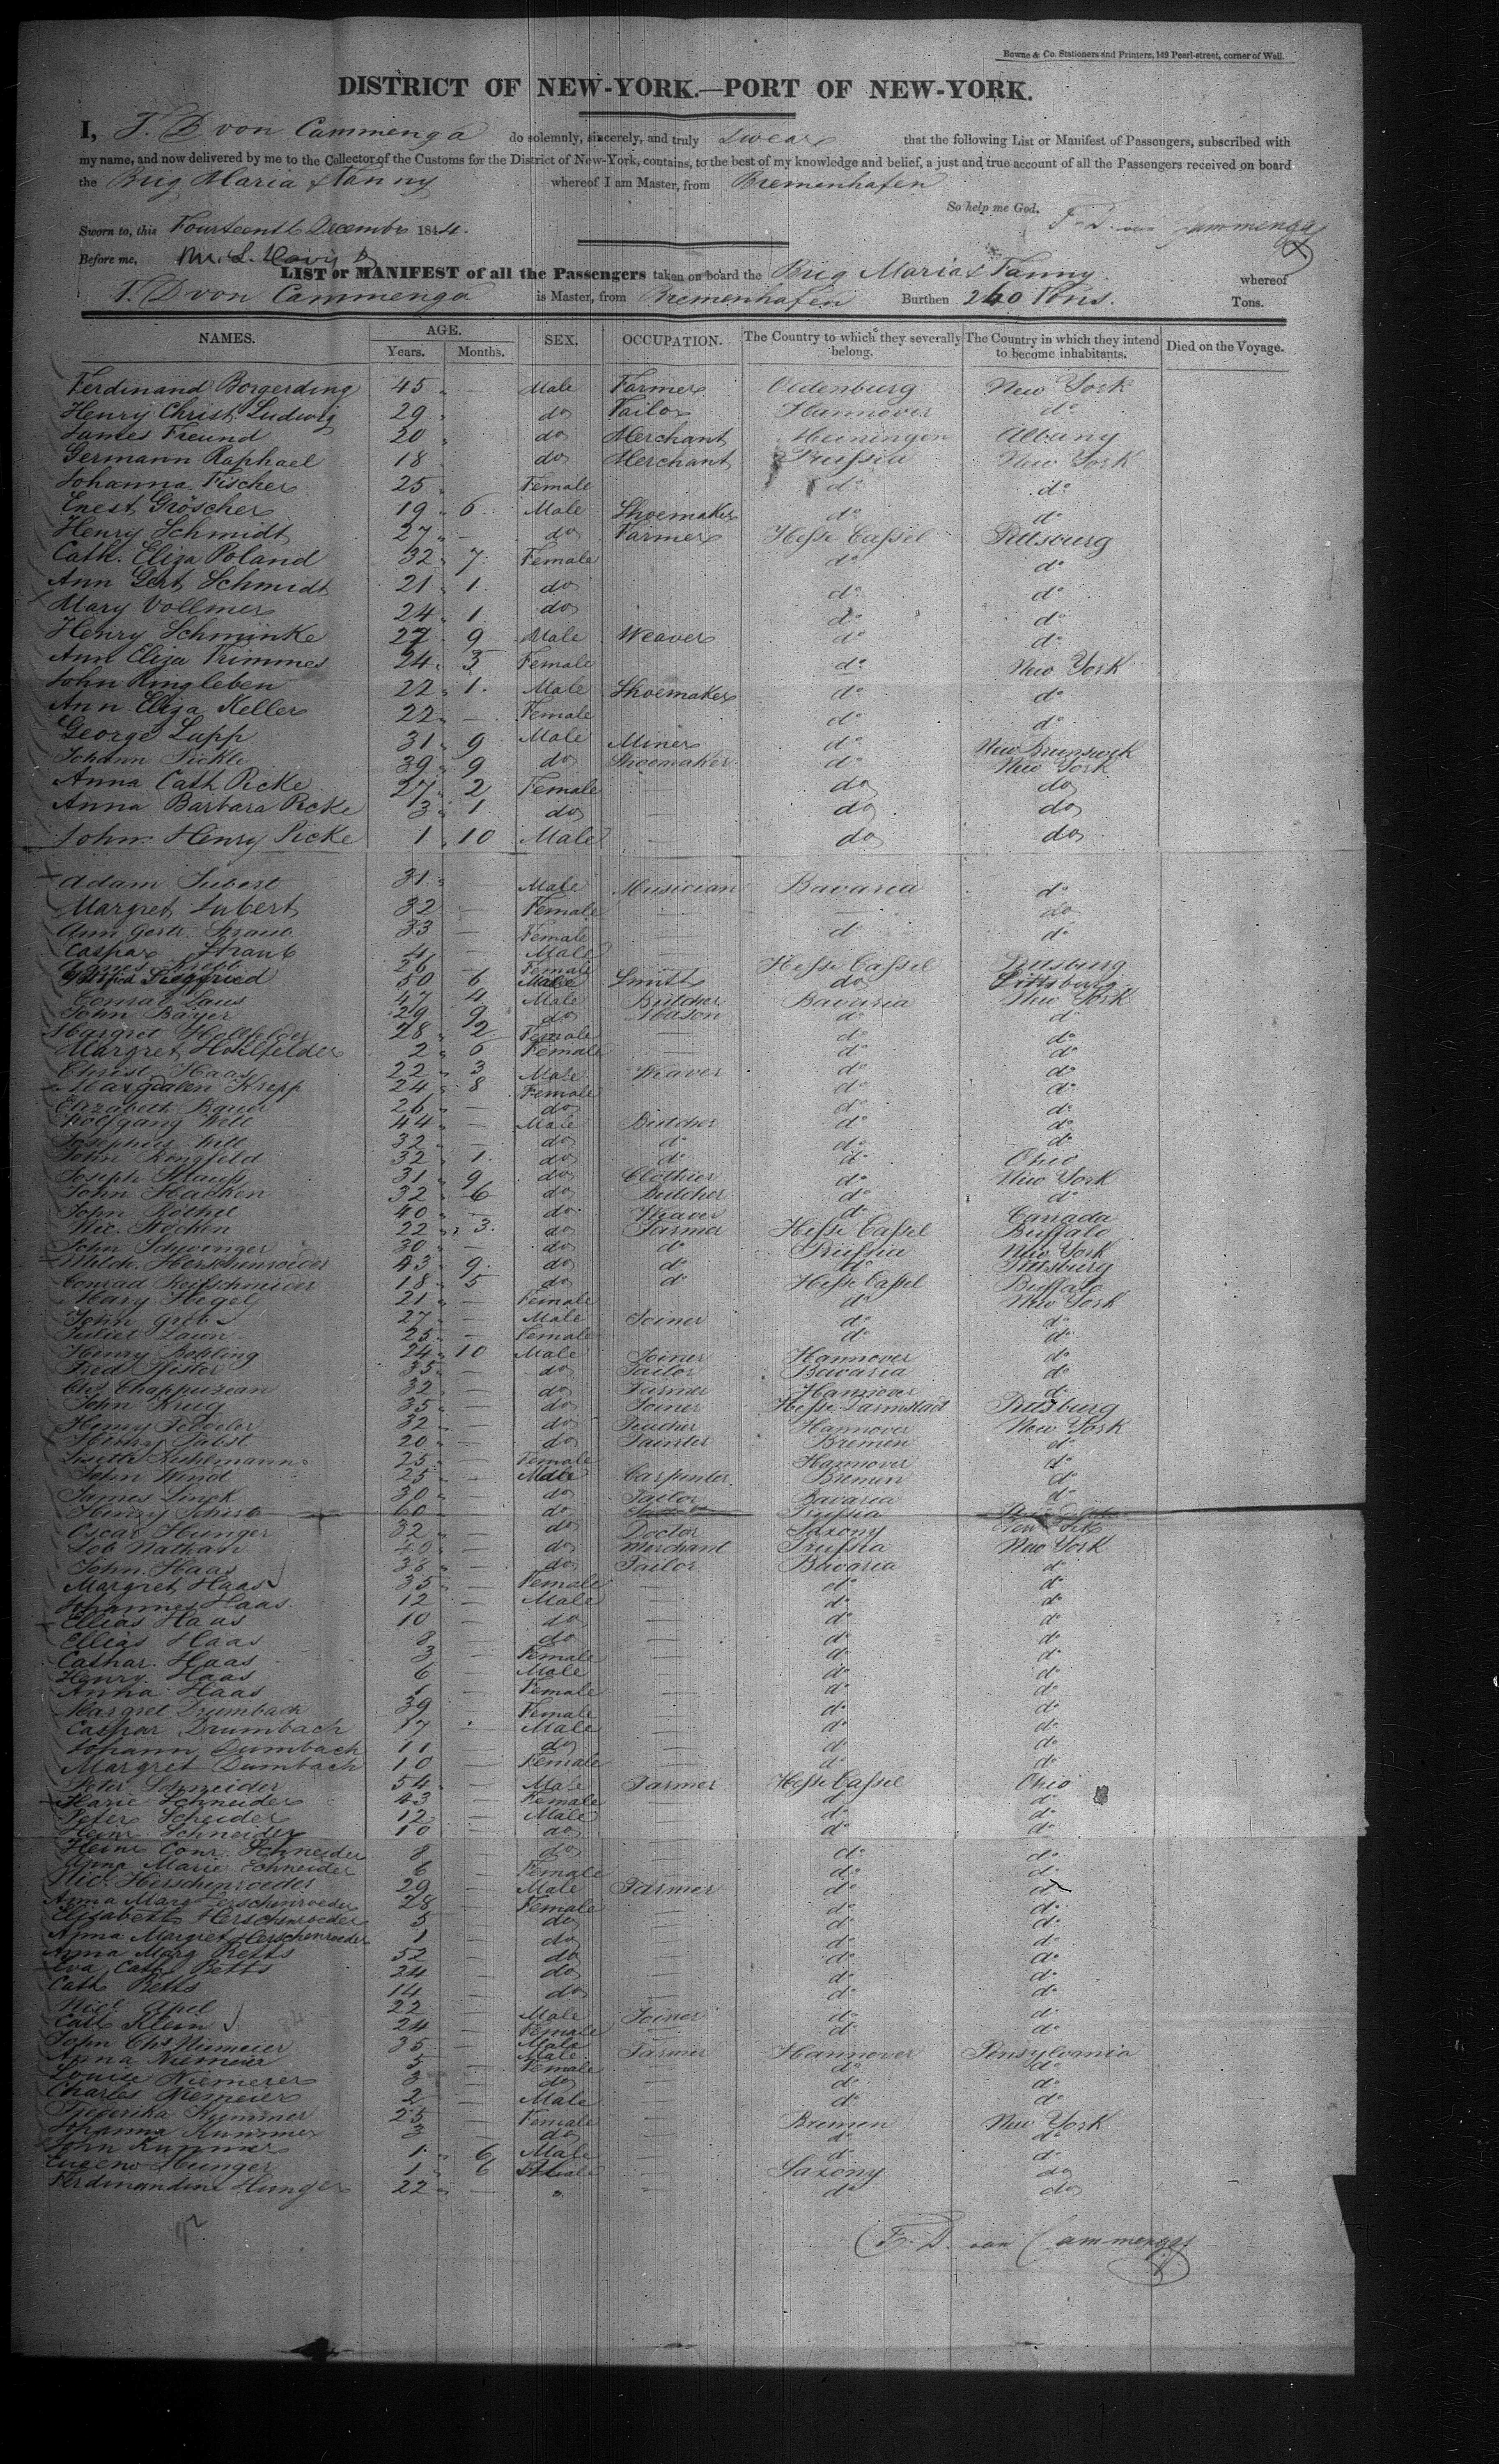 Bowne & Co. Stationers and Printers, 149 Pearl-street, corner of Wall.
DISTRICT OF NEW-YORK.—PORT OF NEW-YORK.
I, T. D von Cammenga do solemnly, sincerely, and truly Swear that the following List or Manifest of Passengers, subscribed with
my name, and now delivered by me to the Collector of the Customs for the District of New-York, contains, to the best of my knowledge and belief, a just and true account of all the Passengers received on board
the Brig Maria & Fanny whereof I am Master, from Bremenhafen
So help me God. F. D. van Cammenga
Sworn to, this Fourteenth December 1844.
Before me, M. L. Davis
LIST or MANIFEST of all the Passengers taken on board the Brig Maria & Fanny whereof
T. D von Cammenga is Master, from Bremenhafen Burthen 240 Tons. Tons.
NAMES. AGE. Years. Months. SEX. OCCUPATION. The Country to which they severally belong. The Country in which they intend to become inhabitants. Died on the Voyage.
Ferdinand Borgerding 45 — Male Farmer Oldenburg New York
Henry Christ Ludwig 29 do Tailor Hannover do
James Freund 20 do Merchant Meiningen Albany
Germann Raphael 18 do Merchant Prussia New York
Johanna Fischer 25 Female do do
Enest Gröscher 19 6 Male Shoemaker do do
Henry Schmidt 27 — do Farmer Hesse Cassel Pittsburg
Cath. Eliza Poland 32 7 Female do do
Ann Gert Schmidt 21 1 do do do
Mary Vollmer 24 1 do do do
Henry Schminke 27 9 Male Weaver do do
Ann Eliza Trimmer 24 3 Female do New York
John Ringleben 22 1 Male Shoemaker do do
Ann Eliza Keller 22 — Female do do
George Lupp 31 9 Male Miner do New Brunswick
Johann Pickle 39 9 do Shoemaker do New York
Anna Cath Ricke 27 2 Female — do do
Anna Barbara Ricke 3 1 do — do do
John Henry Ricke 1 10 Male — do do
Adam Subert 31 — Male Musician Bavaria do
Margret Subert 32 — Female — — do
Ann Gertr. Straub 33 Female — do do
Caspar Straub 4 — Male —
26 — Female Hesse Cassel Pittsburg
Siegfried 50 6 Male Smith do Pittsburg
Conrad Laus 47 4 Male Butcher Bavaria New York
John Bayer 29 9 do Mason do do
Margret Hohlfelder 28 2 Female — do do
Margret Hohlfelder 2 6 Female — do do
Christ Haas 22 3 Male Weaver do do
Margdalen Krepp 24 8 Female do do
Elizabeth Bauer 26 — do do do
Wolfgang Well 44 — Male Butcher do do
Josephus Well 32 — do do do do
John Rongfeld 32 1 do do do Ohio
Joseph Strauss 31 9 do Clothier do New York
John Hacken 32 6 do Butcher do do
John Röthel 40 — do Weaver do Canada
Nic. Stöcken 22 3 do Farmer Hesse Cassel Buffalo
John 30 — do do Prussia New York
Melch. Herschenroeder 43 9 do do do Pittsburg
Conrad Reifschneider 18 5 do do Hesse Cassel Buffalo
Mary Hegel 21 — Female do New York
John Greb 27 — Male Joiner do do
Juliet Laun 25 — Female do do
Henry Bohling 24 10 Male Joiner Hannover do
Fred Pfister 35 — do Tailor Bavaria do
Chs. Chappuzeau 32 — do Farmer Hannover do
John Krug 35 — do Joiner Hesse Darmstadt Pittsburg
Henry 32 — do Teacher Hannover New York
Henry Pabst 20 — do Painter Bremen do
Lisette Kuhlmann 25 — Female Hannover do
John Wind 25 — Male Carpenter Bremen do
James Linck 30 — do Tailor Bavaria do
Henry 60 — do Prussia
Oscar Hunger 32 — do Doctor Saxony New York
Lob Nathan — do Merchant Prussia New York
John Haas 38 — do Tailor Bavaria do
Margret Haas 35 — Female — do do
Johannes Haas 12 — Male — do do
Ellias Haas 10 do — do do
Ellias Haas 8 — do — do do
Cathar. Haas 3 — Female — do do
Henry Haas 6 — Male — do do
Anna Haas 1 — Female — do do
Margret Drumbach 39 — Female — do do
Caspar Drumbach 17 Male — do do
Johann Dumbach 11 — do — do do
Margret Dumbach 10 — Female — do do
Peter Schneider 54 — Male Farmer Hesse Cassel Ohio
Marie Schneider 43 — Female — do do
Peter Scheider 12 — Male — do do
Heinr Schneider 10 — do — do do
Heinr Conr. Schneider 8 — do — do do
Anna Marie Schneider 6 — Female — do do
Nic. Herschenroeder 29 — Male Farmer do do
Anna Marg Herschenroeder 28 — Female — do do
Elisabeth Herschenroeder 5 — do — do do
Anna Margret Herschenroeder 1 — do — do do
Anna Marg Betts 52 — do — do do
Eva Cath Betts 24 — do — do do
Cath Betts 14 — do — do do
Nicl Apel 22 Male Joiner do do
Cath Klein 24 Female — do do
John Chs Niemeier 35 Male Farmer Hannover Pensylvania
Anna Niemeier 5 — Female — do do
Louise Niemeier 3 — do — do do
Charles Niemeier 2 — Male — do do
Frederika Kummer 25 — Female — Bremen New York
Johanna Kummer 3 — do do do
John Kummer 1 6 Male — do do
Eugene Hunger 1 6 Male — Saxony do
Ferdinandine Hunger 22 — " — do do
92
F. D. van Cammenga